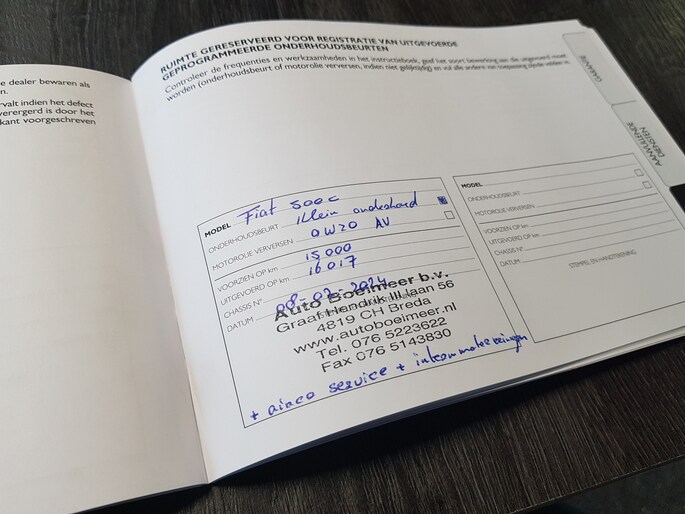 e dealer bewaren als
n.
rvalt indien het defect
verergerd is door het
kant voorgeschreven
RUIMTE GERESERVEERD VOOR REGISTRATIE VAN UITGEVOERDE
GEPROGRAMMEERDE ONDERHOUDSBEURTEN
Controleer de frequenties en werkzaamheden in het instructieboek, geef het soort bewerking aan die uitgevoerd moet
worden (onderhoudsbeurt of motorolie verversen, indien niet gelijktijdig) en vul alle andere van toepassing zijnde velden in
GARANTIE
AANVULLENDE
DIENSTEN
MODEL Fiat 500c
ONDERHOUDSBEURT Klein onderhoud
MOTOROLIE VERVERSEN 0W20 AV
VOORZIEN OP km 15000
UITGEVOERD OP km 16017
CHASSIS N°
DATUM 08-02-2024
Auto Boeimeer b.v.
Graaf Hendrik III laan 56
4819 CH Breda
www.autoboeimeer.nl
Tel. 076 5223622
Fax 076 5143830
+ airco service +
MODEL
ONDERHOUDSBEURT
MOTOROLIE VERVERSEN
VOORZIEN OP km
UITGEVOERD OP km
CHASSIS N°
DATUM
STEMPEL EN HANDTEKENING